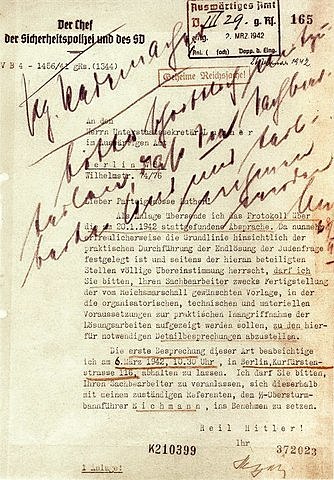 Der Chef
der Sicherheitspolizei und des SD
IV B 4 - 1456/41 gRs. (1344)
Auswärtiges Amt
D. III 29. g. Rs.
Eing. 2. MRZ. 1942
Anl. ( fach) Dopp. d. Eing.
165
Geheime Reichssache!
1942
An den
Herrn Unterstaatssekretär L u t h e r
im Auswärtigen Amt
B e r l i n
Wilhelmstr. 74/76
Lieber Parteigenosse Luther!
Als Anlage übersende ich das Protokoll über
die am 20.1.1942 stattgefundene Absprache. Da nunmehr
erfreulicherweise die Grundlinie hinsichtlich der
praktischen Durchführung der Endlösung der Judenfrage
festgelegt ist und seitens der hieran beteiligten
Stellen völlige Übereinstimmung herrscht, darf ich
Sie bitten, Ihren Sachbearbeiter zwecks Fertigstellung
der vom Reichsmarschall gewünschten Vorlage, in der
die organisatorischen, technischen und materiellen
Voraussetzungen zur praktischen Inangriffnahme der
Lösungsarbeiten aufgezeigt werden sollen, zu den hier-
für notwendigen Detailbesprechungen abzustellen.
Die erste Besprechung dieser Art beabsichtige
ich am 6. März 1942, 10.30 Uhr , in Berlin, Kurfürsten-
strasse 116, abhalten zu lassen. Ich darf Sie bitten,
Ihren Sachbearbeiter zu veranlassen, sich dieserhalb
mit meinem zuständigen Referenten, dem ᛋᛋ-Obersturm-
bannführer E i c h m a n n , ins Benehmen zu setzen.
Heil Hitler!
Ihr
K210399
372023
1 Anlage!